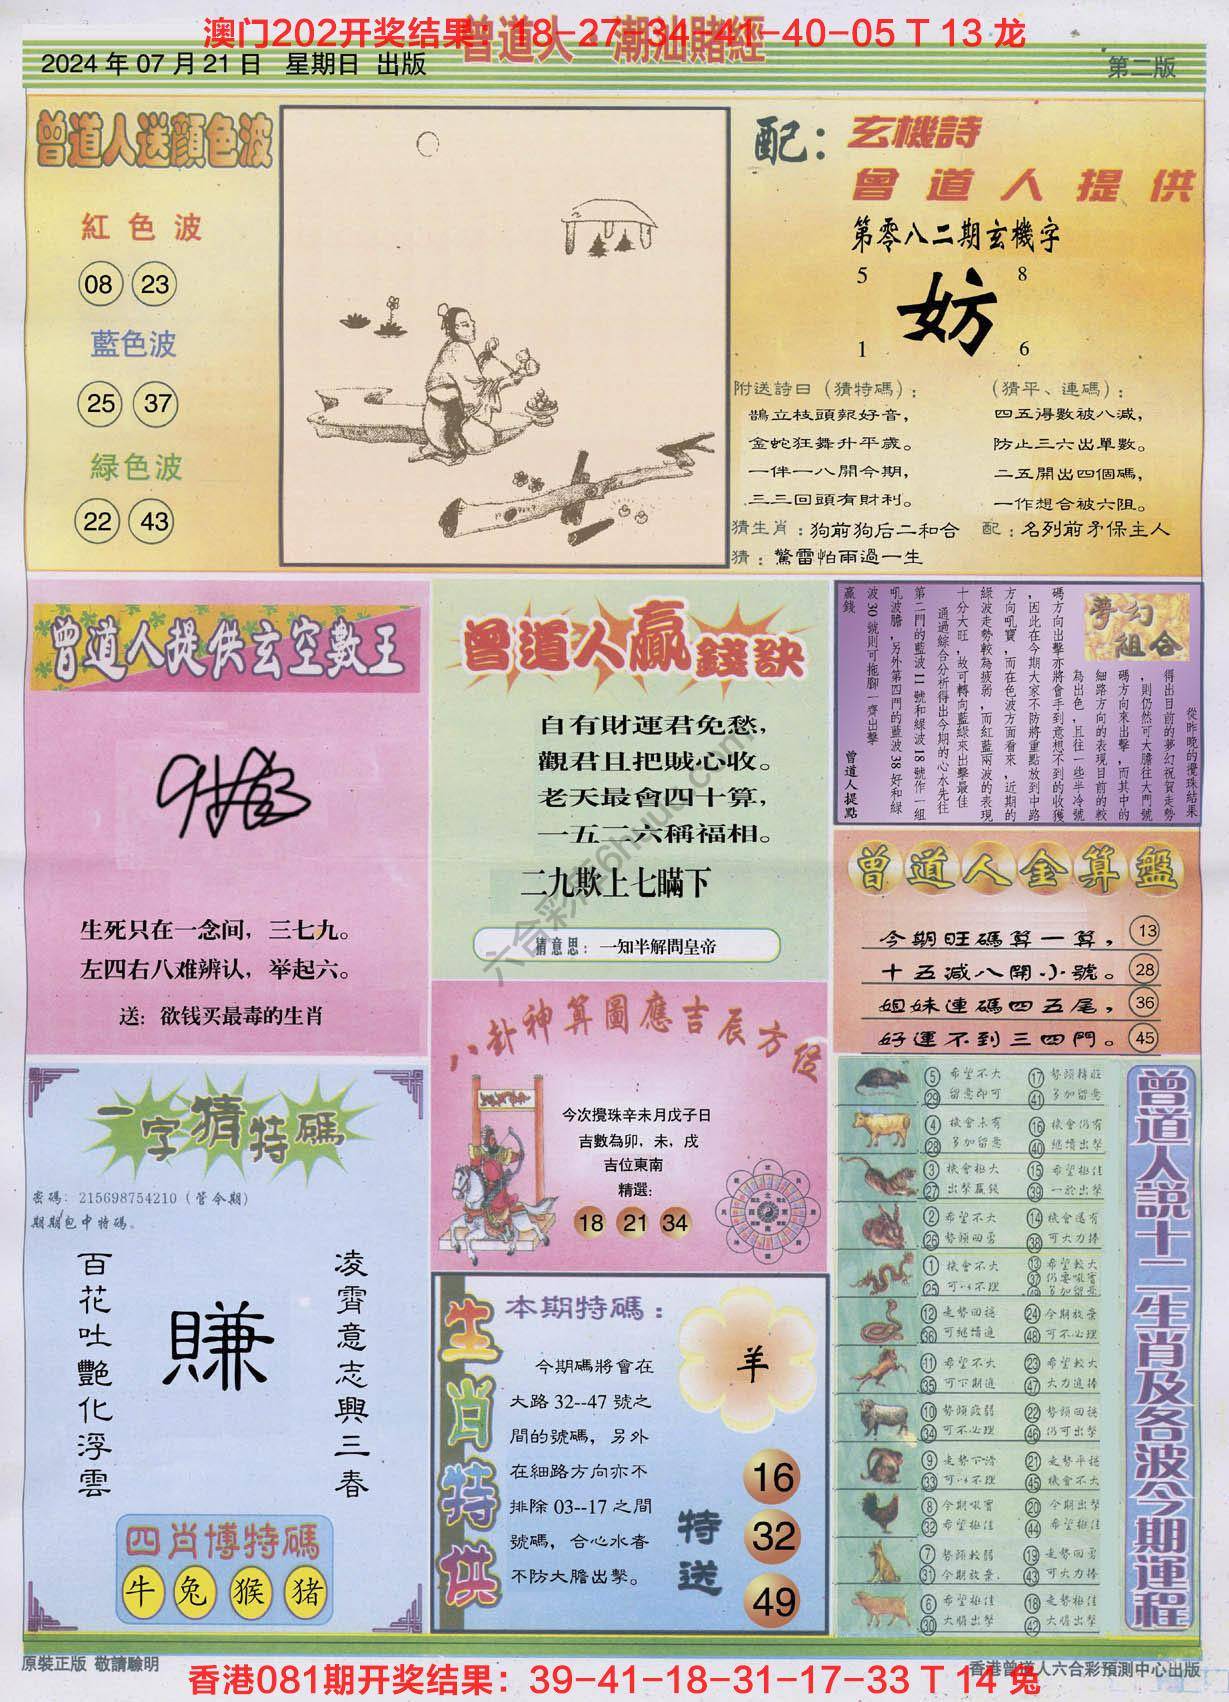 澳门202开奖结果：18-27-34-41-40-05 T 13 龙
曾道人 潮汕賭經
2024 年 07 月 21 日 星期日 出版
第二版
曾道人送顏色波
紅色波
08 23
藍色波
25 37
緑色波
22 43
配：
玄機詩
曾道人提供
第零八二期玄機字
5 8
妨
1 6
附送詩日（猜特碼）：
鵲立枝頭報好音，
金蛇狂舞升平歲。
一伴一八開今期，
三三回頭有財利。
（猜平、連碼）：
四五得數被八減，
防止三六出單數。
二五開出四個碼，
一作想合被六阻。
猜生肖：狗前狗后二和合
配：名列前矛保主人
猜：驚雷怕雨過一生
曾道人提供玄空數王
生死只在一念间，三七九。
左四右八难辨认，举起六。
送：欲钱买最毒的生肖
曾道人贏錢訣
自有財運君免愁，
觀君且把賊心收。
老天最會四十算，
一五二六稱福相。
二九欺上七瞞下
猜意思：一知半解問皇帝
夢幻組合
從昨晚的攪珠結果
得出目前的夢幻祝賀走勢
，則仍然可大膽往大門號
碼方向來出擊，而其中的
細路方向的表現目前的較
為出色，且往一些半冷號
碼方向出擊亦將會手到意想不到的收獲
，因此在今期大家不防將重點放到中路
方向吼寶，而在色波方面看來，近期的
綠波走勢較為疲弱，而紅藍兩波的表現
十分大旺，故可轉向藍綠來出擊最佳
通過綜合分析得出今期的心水先往
第二門的藍波11號和綠波18號作一組
吼波膽，另外第四門的藍波38好和綠
波30號則可拖腳一齊出擊
贏錢
曾道人提點
曾道人金算盤
今期旺碼算一算， 13
十五减八開小號。 28
姐妹連碼四五尾， 36
好運不到三四門。 45
八卦神算圖應吉辰方位
今次攪珠辛未月戊子日
吉數為卯，未，戌
吉位東南
精選:
18 21 34
一字猜特碼
密碼：215698754210（管今期）
期期包中特碼。
百花吐艷化浮雲
賺
凌霄意志興三春
四肖博特碼
牛 兔 猴 猪
生肖特供
本期特碼：
今期碼將會在
大路 32--47 號之
間的號碼，另外
在細路方向亦不
排除 03--17 之間
號碼，合心水者
不防大膽出擊。
羊
特送
16
32
49
曾道人說十二生肖及各波今期運程
5 希望不大 17 勢頭轉旺
29 留意即可 41 多加留意
4 機會未有 16 機會仍有
28 多加留意 40 繼續出擊
3 機會極大 15 希望極佳
27 出擊贏錢 39 一於出擊
2 希望不大 14 機會還有
26 勢頭回勇 38 可大力捧
1 機會不大 13 希望較大
25 可以不理
12 走勢回穩 24 今期放棄
36 可繼續追 48 可不必理
11 希望不大 23 希望較大
35 可下期追 47 大力追捧
10 勢頭疲弱 22 勢頭回穩
34 可不必理 46 仍可出擊
9 走勢下滑 21 走勢平穩
33 可以不理 45 機會不大
8 今期吼寶 20 今期出擊
32 希望極佳 44 希望極佳
7 勢頭較弱 19 走勢回勇
31 今期放棄. 43 可大力捧
6 希望極佳 18 走勢極佳
30 大膽出擊 42 大膽出擊
原裝正版 敬請驗明
香港曾道人六合彩預測中心出版
香港081期开奖结果：39-41-18-31-17-33 T 14 兔